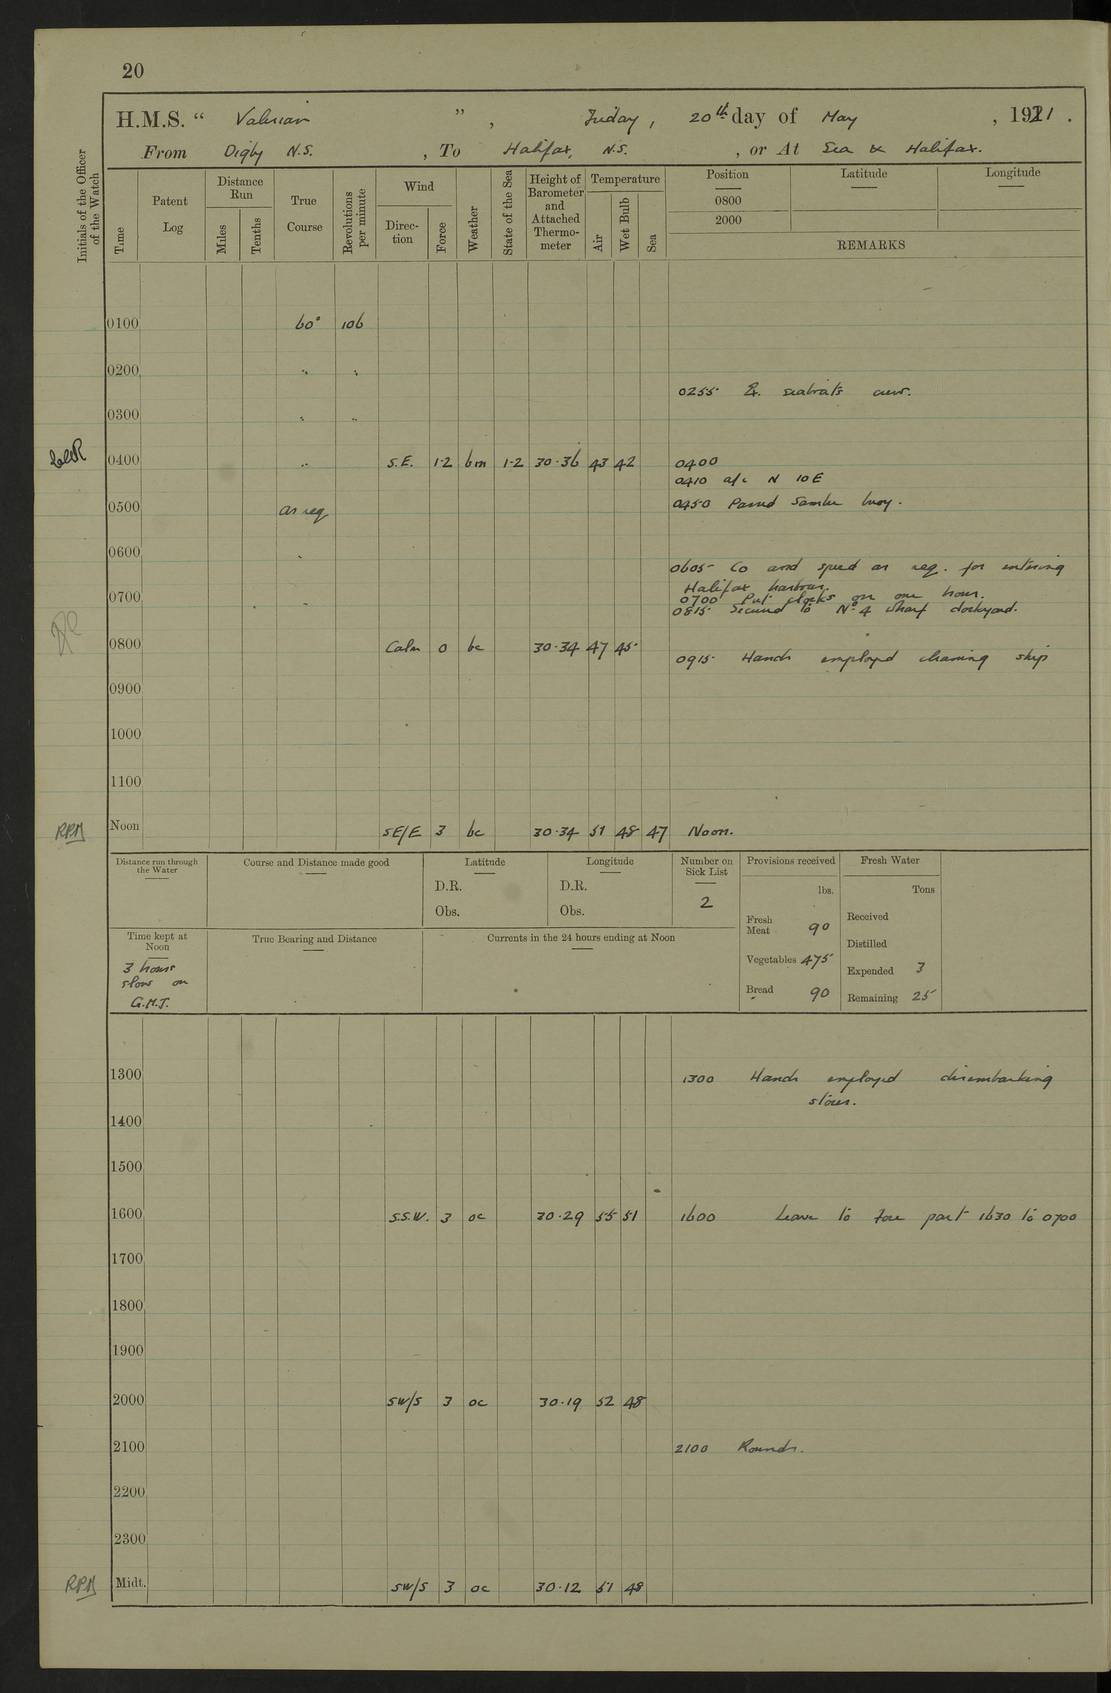 20
H.M.S. “ Valerian ”, Friday, 20th day of May, 1921.
From Digby N.S., To Halifax, N.S., or At Sea & Halifax.
Initials of the Officer of the Watch
Time
Patent Log
Distance Run
Miles
Tenths
True Course
Revolutions per minute
Wind
Direction
Force
Weather
State of the Sea
Height of Barometer and Attached Thermometer
Temperature
Air
Wet Bulb
Sea
Position
0800
2000
Latitude
Longitude
REMARKS
0100 60° 106
0200 " "
0255 Ex. seaboats crew.
0300 " "
0400 " S.E. 1-2 bm 1-2 30·36 43 42 0400
0410 a/c N 10 E
0500 as req 0450 Passed Sambro buoy.
0600 "
0605 Co and speed as req. for entering
Halifax harbour.
0700 " 0700 Put clocks on one hour.
0815 Secured to No 4 wharf dockyard.
0800 Calm 0 bc 30·34 47 45
0915 Hands employed cleaning ship
0900
1000
1100
RPM Noon SE/E 3 bc 30·34 51 48 47 Noon.
Distance run through the Water
Course and Distance made good
Latitude
D.R.
Obs.
Longitude
D.R.
Obs.
Number on Sick List
2
Provisions received
lbs.
Fresh Meat 90
Vegetables 475
Bread 90
Fresh Water
Tons
Received
Distilled
Expended 3
Remaining 25
Time kept at Noon
3 hours
slow on
G.M.T.
True Bearing and Distance
Currents in the 24 hours ending at Noon
1300 1300 Hands employed disembarking
stores.
1400
1500
1600 S.S.W. 3 oc 30·29 55 51 1600 Leave to Fore part 1630 to 0700
1700
1800
1900
2000 SW/S 3 oc 30·19 52 48
2100 2100 Rounds.
2200
2300
RPM Midt. SW/S 3 oc 30·12 51 48